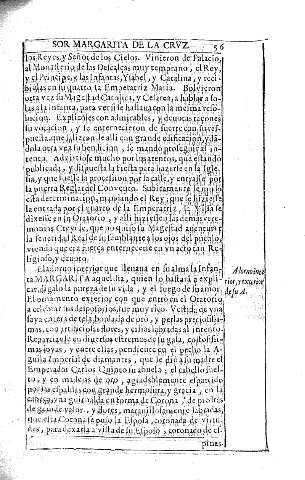 SOR MARGARITA DE LA CRVZ. 56
los Reyes, y Señor de los Cielos. Vinieron de Palacio,
al Monasterio de las Descalças muy temprano, el Rey,
y el Principe, y las Infantas, Ysabel, y Catalina, y reci-
bidas en su quarto la Emperatriz Maria. Bolvieron
otra vez su Magestad Catolica, y Cesarea, a hablar a so-
las a la Infanta, para ver si se hallava con la misma reso-
lucion. Explicóles con admirables, y devotas razones
su vocacion, y se enternecieron de suerte con
que salieron de alli con grande edificacion, y
dola otra vez su bendicion, se mando proseguir al in-
tento. que estando
publicada, y dispuesta la fiesta para hazerse en la Igle-
sia, y que fuesse la procession por la calle, y entrasse por
la puerta Reglar del Convento.
mandando el Rey, que se hiziesse
la entrada por el quarto de la Emperatriz, la Missa se
dixesse en el Oratorio, y alli hiziesse las demas cere-
monias. Creyóse, que no quiso la Magestad aventurar
la serenidad Real de su semblante a los ojos del pueblo,
viendo que era fuerça enternecerse en un acto tan Re-
ligioso, y devoto.
El adorno interior que llevava en su alma la Infan-
ta MARGARITA aquel dia, quien lo bastará a expli-
car, digalo la pureza de su vida, y el fuego de su amor.
El ornamento exterior con que entró en el Oratorio
a celebrar los desposorios fue muy rico. Vestida de una
saya entera de tela bordada de oro, y perlas
mas, con artificiosas flores, y labradas al intento.
en diversos estremos de su gala,
mas joyas, y entre ellas, pendiente en el pecho la A-
guila Imperial de diamantes, que le dió a su madre el
Emperador Carlos Quinto su abuelo, el cabello suel-
to, y en madexas de oro, agradablemente esparcido
por las espaldas con grande hermosura, y gracia, en la
cabeça una guirnalda en forma de Corona, de piedras
de grande valor, y flores, maravillosamente labradas,
que esta Corona se puso la Esposa, coronada de virtu-
des, para dexarla a vista de su Esposo, coronado de es-
pinas.
Adorno inte-
rior, y exterior
de su A.